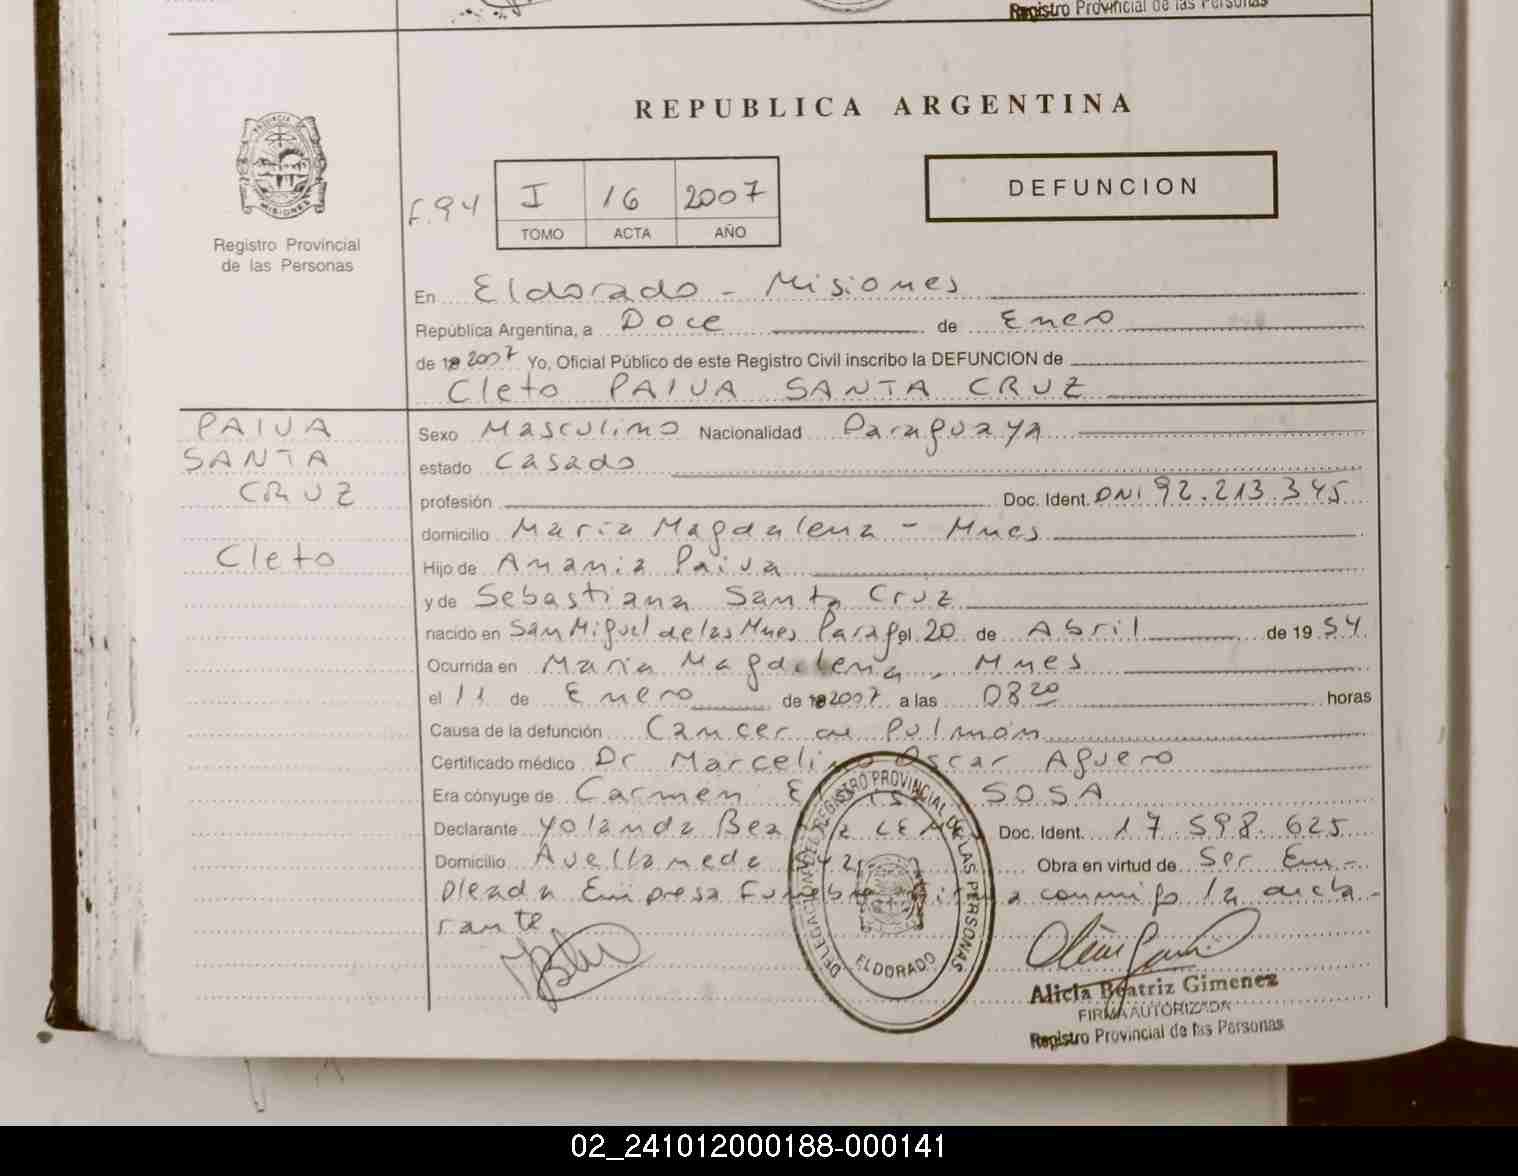 Registro Provincial de las Personas
REPUBLICA ARGENTINA
PROVINCIA DE
MISIONES
Registro Provincial
de las Personas
F. 94
I 16 2007
TOMO ACTA AÑO
DEFUNCION
En Eldorado - Misiones
República Argentina, a Doce de Enero
de 2007 Yo, Oficial Público de este Registro Civil inscribo la DEFUNCION de
Cleto PAIVA SANTA CRUZ
PAIVA
SANTA
CRUZ
Cleto
Sexo Masculino Nacionalidad Paraguaya
estado Casado
profesión Doc. Ident. DNI 92.213.345
domicilio Maria Magdalena - Mnes
Hijo de Anania Paiva
y de Sebastiana Santa Cruz
nacido en San Miguel de las Mnes Parag el 20 de Abril de 1954
Ocurrida en Maria Magdalena, Mnes
el 11 de Enero de 2007 a las 08 20 horas
Causa de la defunción Cancer de Pulmón
Certificado médico Dr Marcelino Oscar Aguero
Era cónyuge de Carmen SOSA
Declarante Yolanda Doc. Ident. 17 598 625
Domicilio Avellaneda Obra en virtud de Ser Em-
pleada Empresa Funebre firma conmigo la decla-
rante
DELEGACION DEL REGISTRO PROVINCIAL DE LAS PERSONAS
ELDORADO
Alicia Beatriz Gimenez
FIRMA AUTORIZADA
Registro Provincial de las Personas
02_241012000188-000141